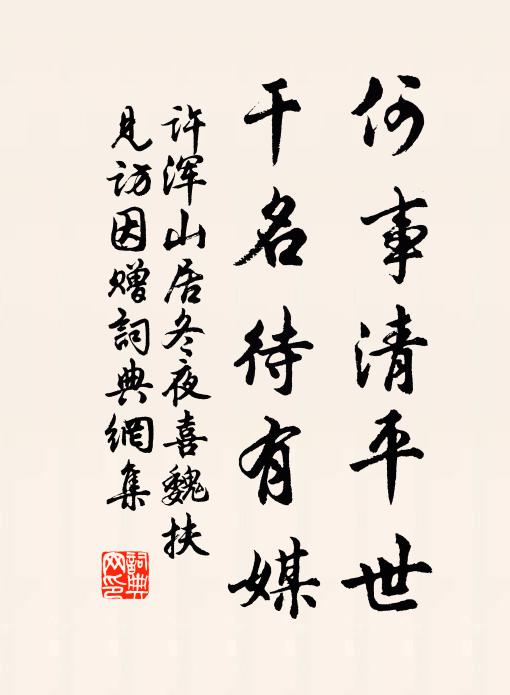 何事清平世
干名待有媒
许浑山居冬夜喜魏扶
见访因赠詞典網集
詞典
网印